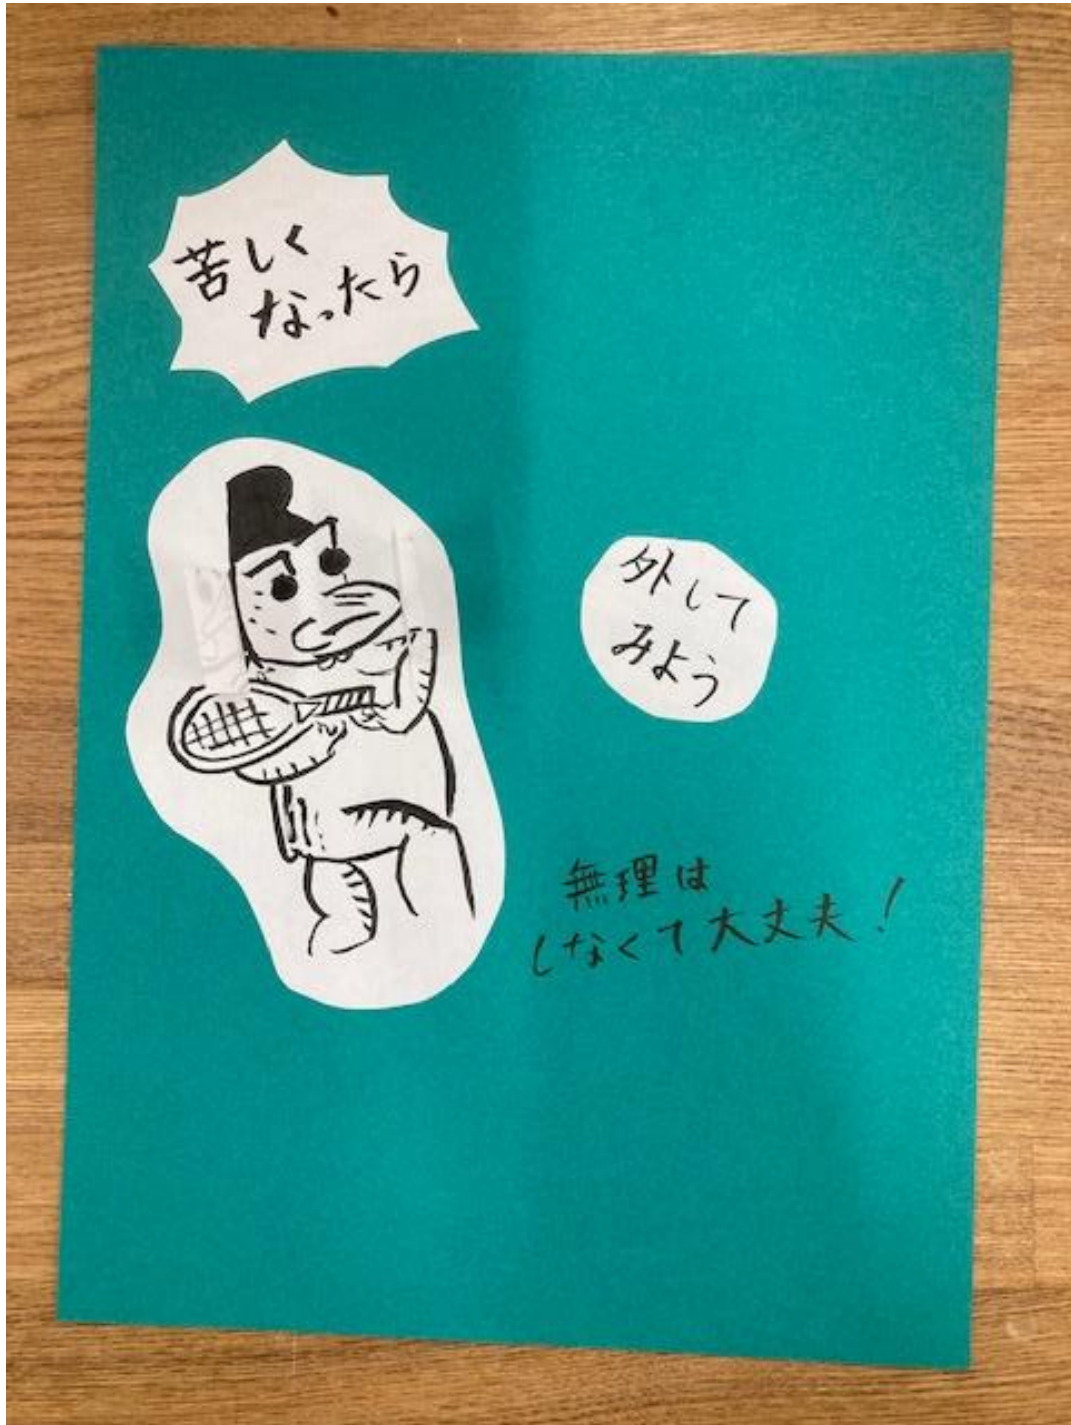 苦しく
なったら
外して
みよう
無理は
しなくて大丈夫!